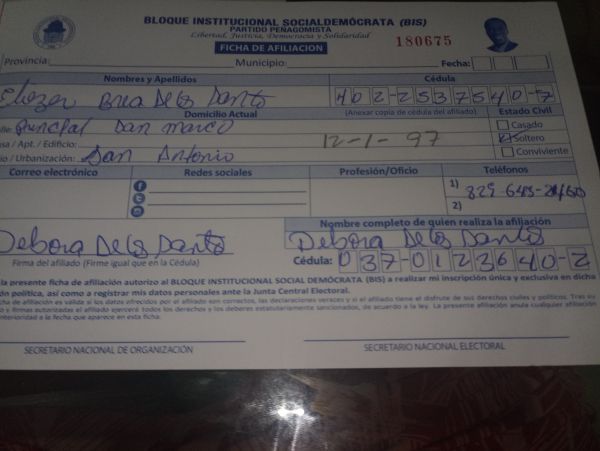 BLOQUE INSTITUCIONAL SOCIALDEMÓCRATA (BIS)
PARTIDO PEÑAGOMISTA
Libertad, Justicia, Democracia y Solidaridad
FICHA DE AFILIACION
180675
Provincia: Municipio: Fecha:
Nombres y Apellidos Cédula
Eliezer Brea De Los Santo 402-2537540-7
Domicilio Actual (Anexar copia de cédula del afiliado) Estado Civil
lle: Principal San marco Casado
sa / Apt. / Edificio: 12-1-97 Soltero
io / Urbanización: San Antonio Conviviente
Correo electrónico Redes sociales Profesión/Oficio Teléfonos
1) 829-645-
2)
Nombre completo de quien realiza la afiliación
Debora De Los Santo Debora De Los Santo
Firma del afiliado (Firme igual que en la Cédula) Cédula: 037-0123640-2
la presente ficha de afiliación autorizo al BLOQUE INSTITUCIONAL SOCIAL DEMÓCRATA (BIS) a realizar mi inscripción única y exclusiva en dicha
ón política, así como a registrar mis datos personales ante la Junta Central Electoral.
cha de afiliación es válida si los datos ofrecidos por el afiliado son correctos, las declaraciones veraces y si el afiliado tiene el disfrute de sus derechos civiles y políticos. Tras su
o y firmas autorizadas el afiliado ejercerá todos los derechos y los deberes estatutariamente sancionados, de acuerdo a la ley. La presente afiliación anula cualquier afiliación
nterioridad a la fecha que aparece en esta ficha.
SECRETARIO NACIONAL DE ORGANIZACIÓN SECRETARIO NACIONAL ELECTORAL